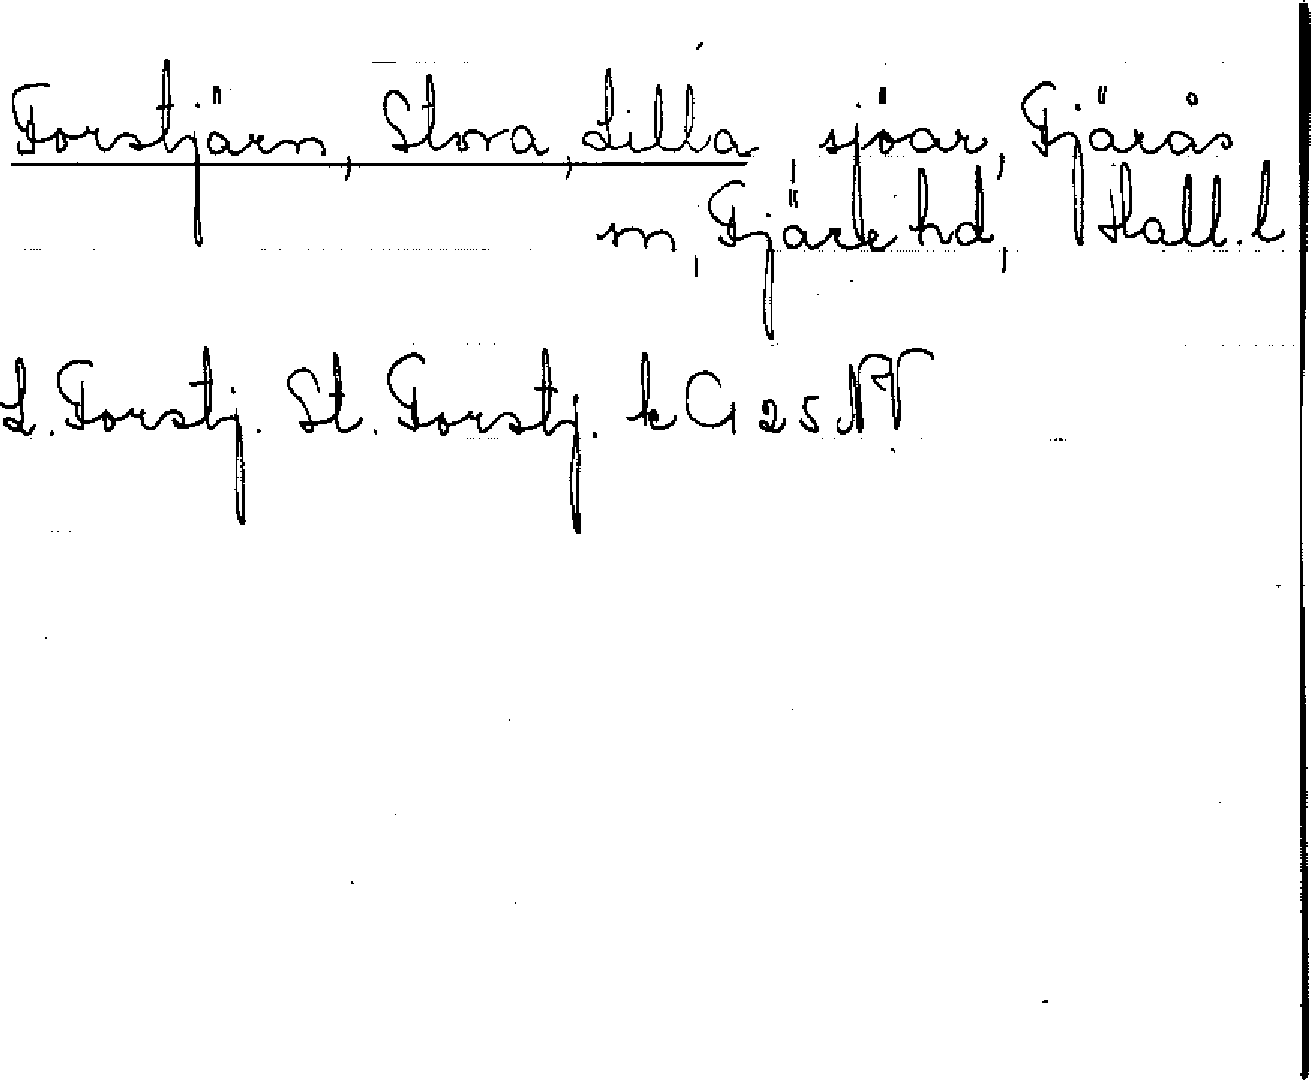 Forstjärn, Stora, Lilla, sjöar, Fjärås
sn, Fjäre hd, Hall. l
L. Forstj. St. Forstj. k G 25 NV